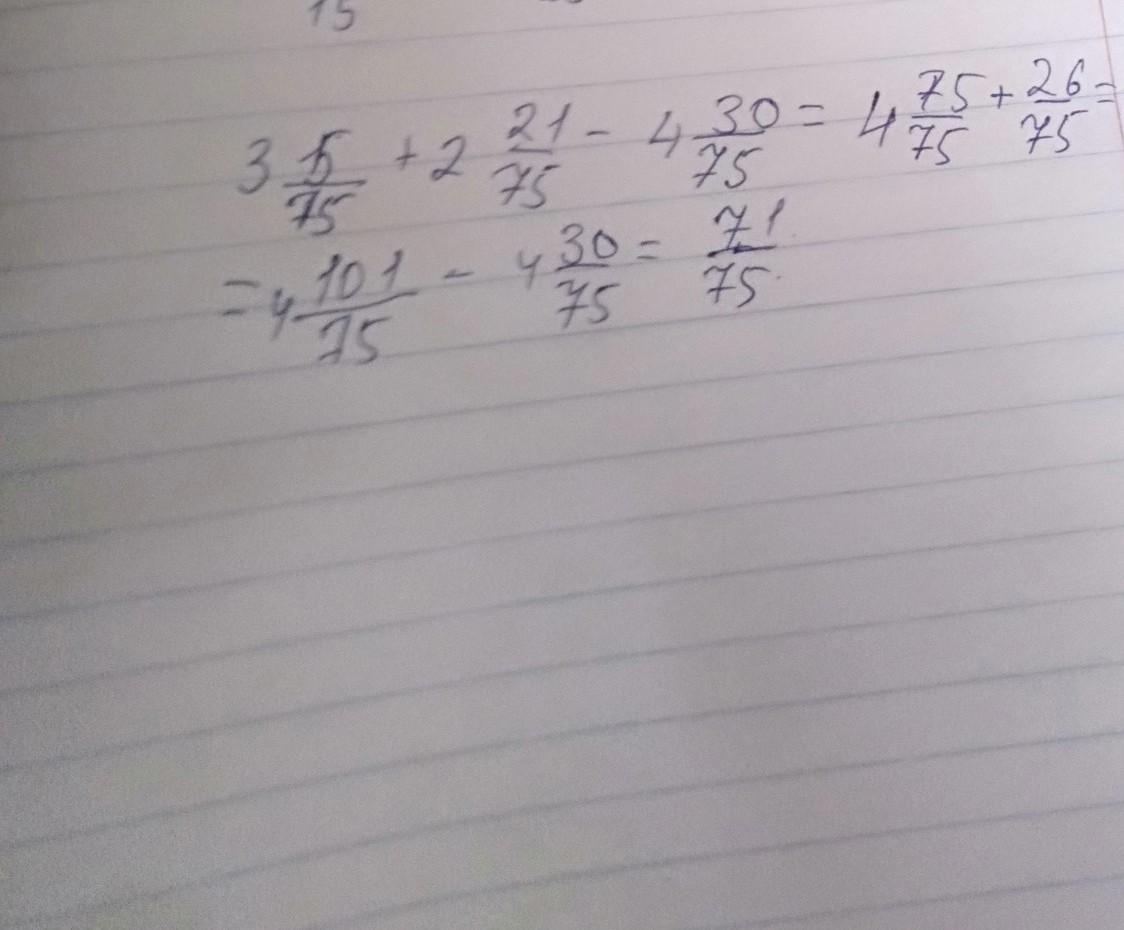 15
3 5/75 + 2 21/75 - 4 30/75 = 4 75/75 + 26/75 =
= 4 101/75 - 4 30/75 = 71/75